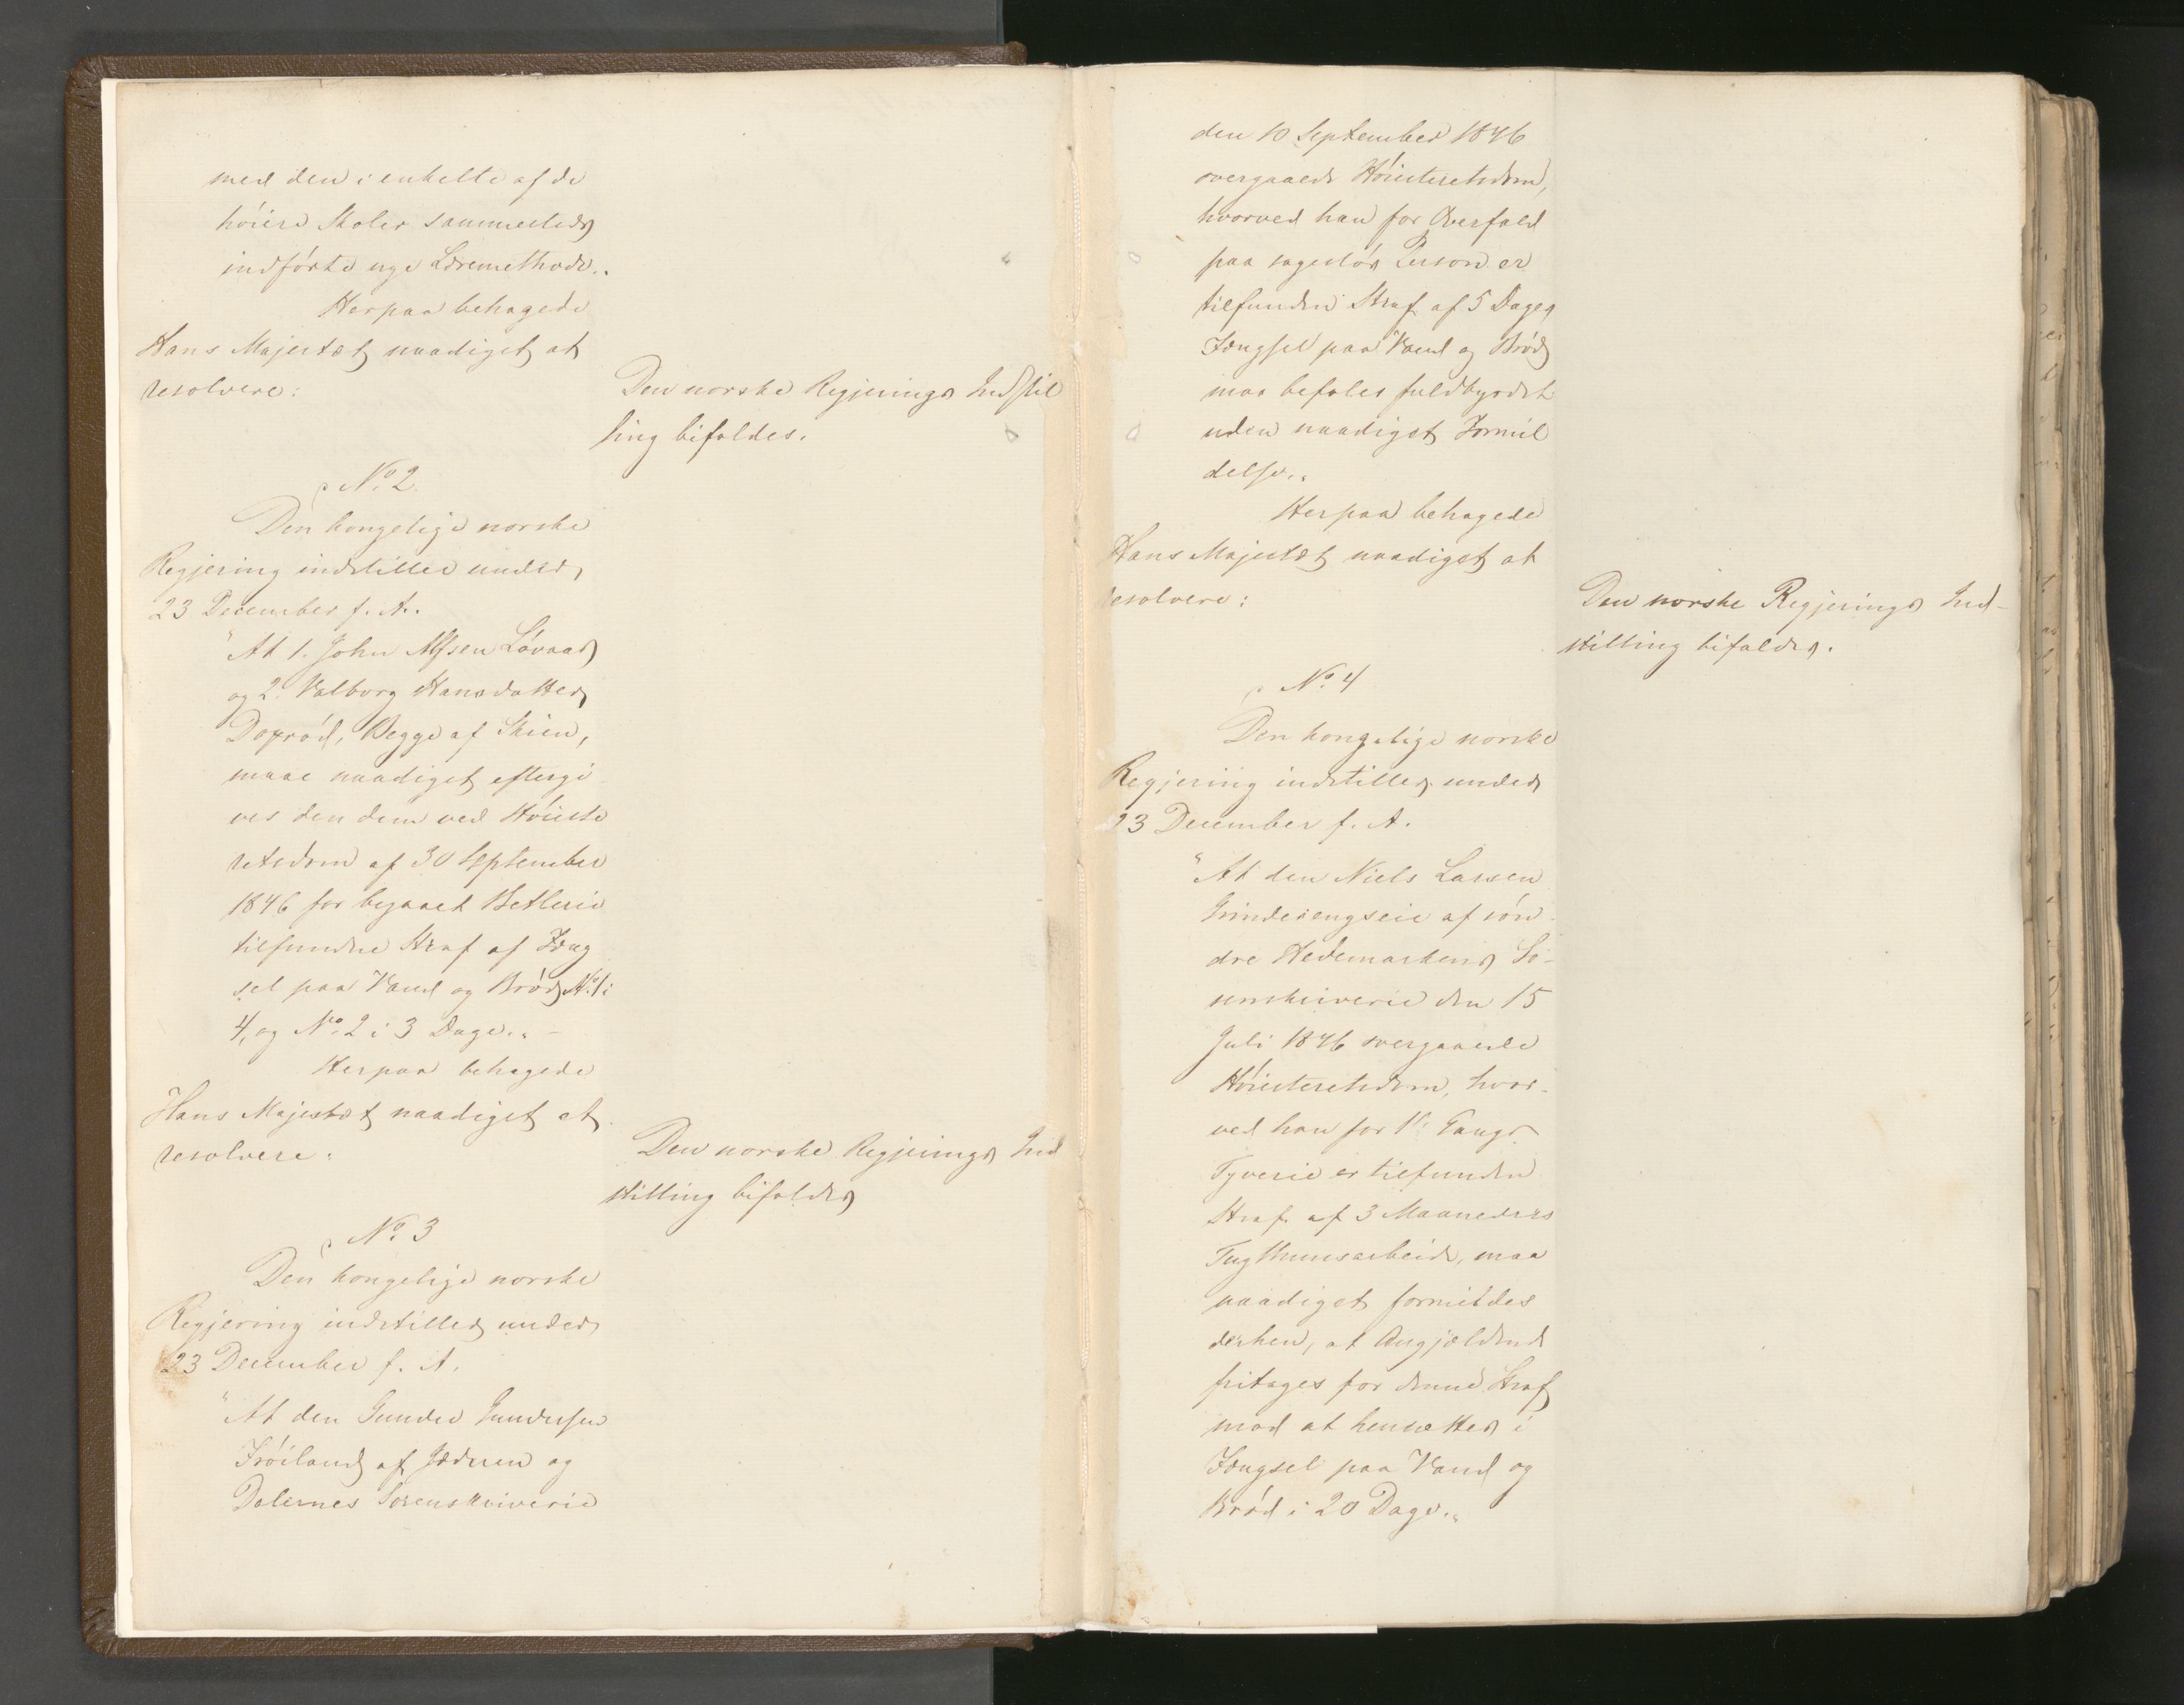 med den i enkelte af de
høiere Skoler sammesteds
indførte nye Læremethode.„
Herpaa behagede
Hans Majestæt naadigst at
resolvere:
Den norske Regjerings Indstil
ling bifaldes.
No. 2.
Den kongelige norske
Regjering indstiller under
23 December f. A..
"At 1. John Alfsen Løvaas
og 2. Valborg Hansdatter
Doprød, Begge af Skien,
maae naadigst eftergi
ves den dem ved Høieste
retsdom af 30 September
1846 for begaaet Betlerie
tilfundne Straf af Fæng
sel paa Vand og Brød, No. 1 i
4, og No. 2 i 3 Dage.„ -
Herpaa behagede
Hans Majestæt naadigst at
resolvere:
Den norske Regjerings Ind
stilling bifaldes
No. 3
Den kongelige norske
Regjering indstiller under
23 December f. A.
"At den Gunder Gundersen
Frøiland af Jæderen og
Dalernes Sorenskriverie
den 10 September 1846
overgaaede Høiesteretsdom,
hvorved han for Overfald
paa sagesløs Person er
tilfunden Straf af 5 Dages
Fængsel paa Vand og Brød,
maa befales fuldbyrdet
uden naadigst Formil
delse.„
Herpaa behagede
Hans Majestæt naadigst at
resolvere:
Den norske Regjerings Ind-
stilling bifaldes.
No. 4
Den kongelige norske
Regjering indstiller under
23 December f. A.
"At den Niels Larsen
Grinderengseie af søn-
dre Hedemarkens So-
renskriverie den 15
Juli 1846 overgaaede
Høiesteretsdom, hvor-
ved han for 1ste Gangs
Tyverie er tilfunden
Straf af 3 Maaneders
Tugthuusarbeide, maa
naadigst formildes
derhen, at Angjældende
fritages for denne Straf
mod at hensættes i
Fængsel paa Vand og
Brød i 20 Dage.„